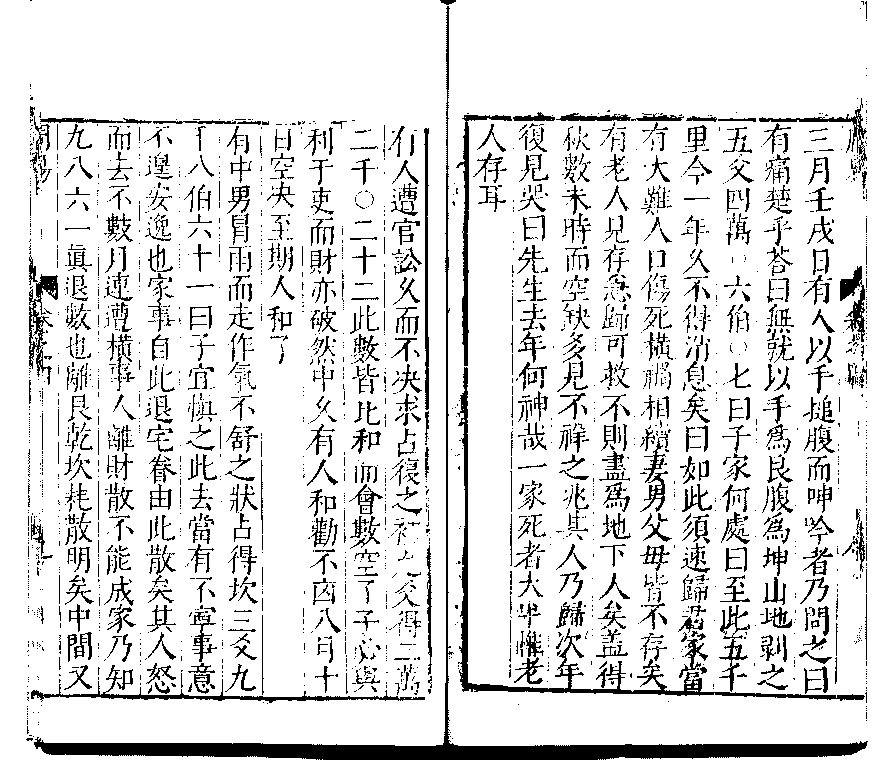 三月壬戌日有人以手搥腹而呻吟者乃問之曰
有痛楚乎荅曰無就以手爲艮腹爲坤山地剥之
五爻四萬○六伯○七曰子家何處曰至此五千
里今一年久不得消息矣曰如此須速歸君家當
有大難人口傷死橫禍相續妻男父毋皆不存矣
有老人見存急歸可救不則盡爲地下人矣盖得
秋數未時而空缺多見不祥之兆其人乃歸次年
復見哭曰先生去年何神哉一家死者大半惟老
人存耳
有人遭官訟久而不决求占復之初九爻得二萬
二千○二十二此數皆比和而會數空了子心與
利于吏而財亦破然中久有人和勸不凶八月十
日空决至期人和了
有中男冒雨而走作氣不舒之狀占得坎三爻九
千八伯六十一曰子宜慎之此去當有不寧事意
不遑安逸也家事自此退宅眷由此散矣其人怒
而去不數月連遭橫事人離財散不能成家乃知
九八六一眞退數也離艮乾坎耗散明矣中間又